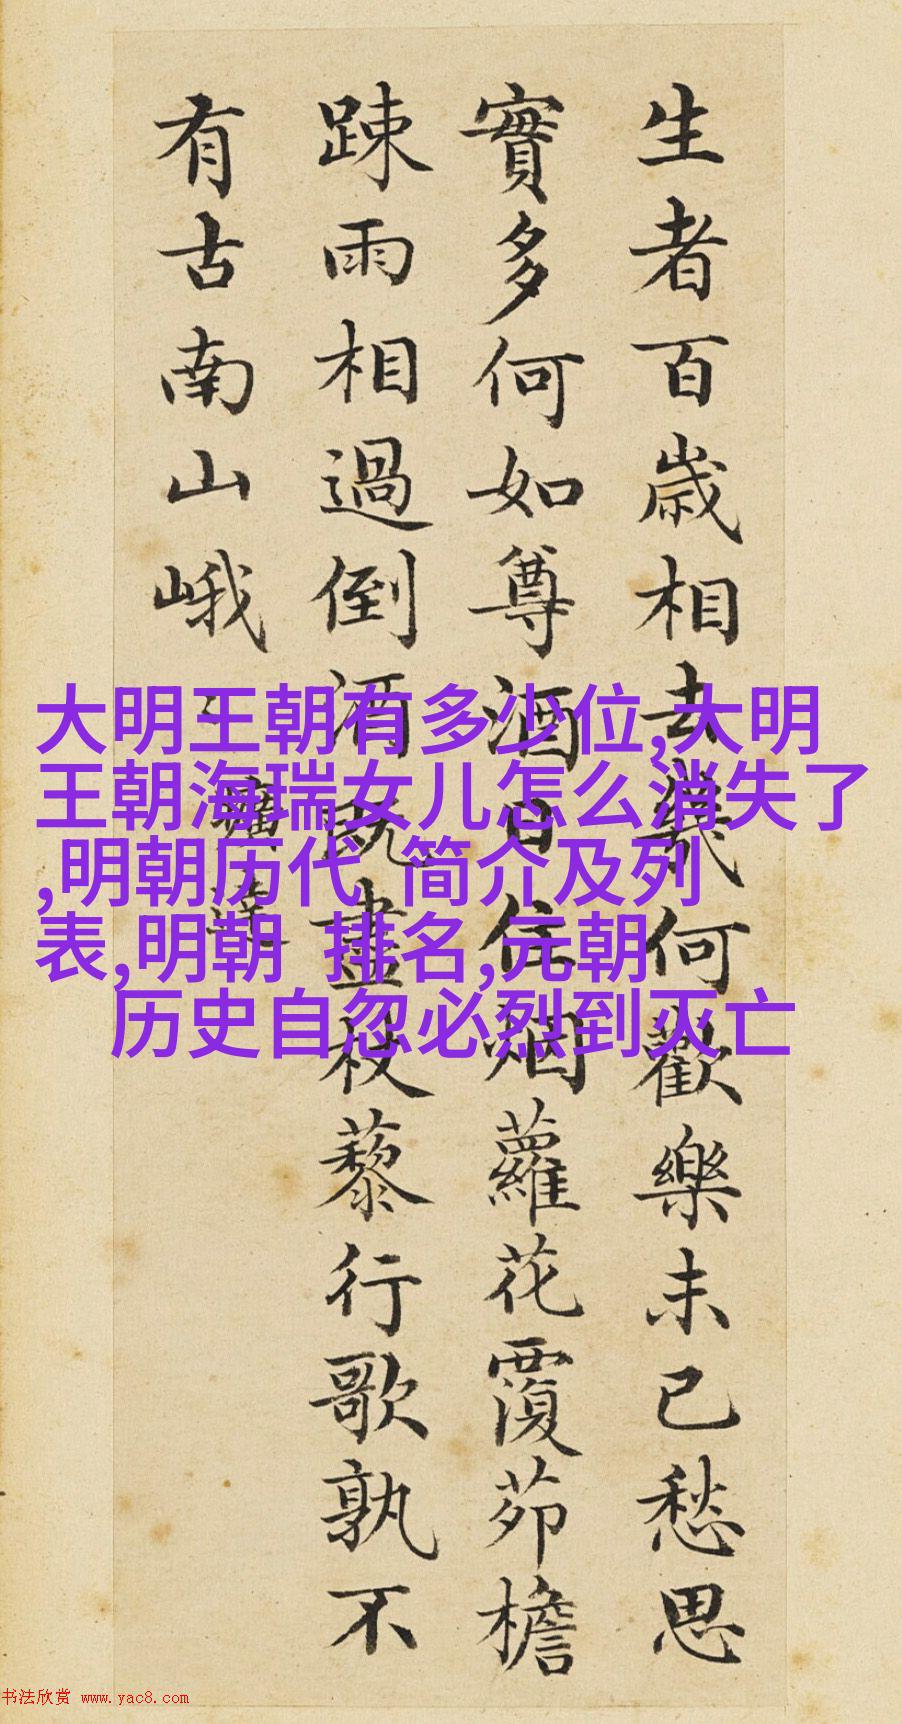 生者百歲相去幾何歡樂未已愁思
實多何如尊酒日住烟蘿花覆茆檐
踈雨相過倒酒既盡杖藜行歌孰不
有古南山峨〻 曠達
大明王朝有多少位,大明
王朝海瑞女儿怎么消失了
,明朝历代 简介及列
表,明朝 排名,元朝
历史自忽必烈到灭亡
书法欣赏 www.yac8.com